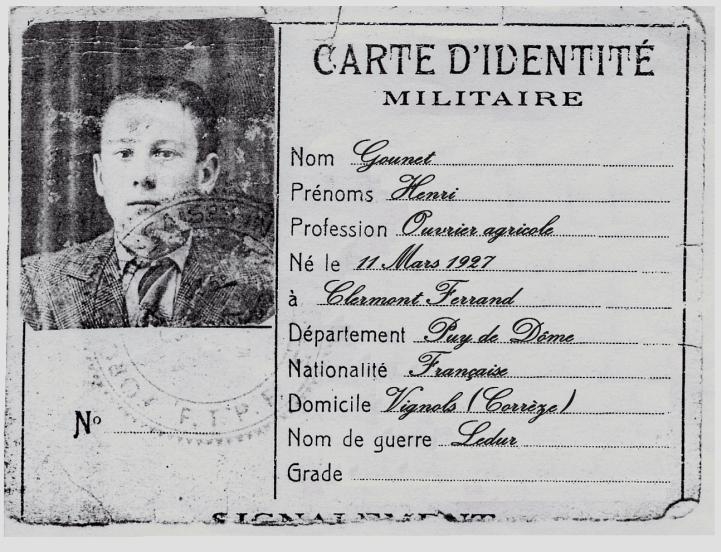 CARTE D'IDENTITÉ
MILITAIRE
Nom Gounet
Prénoms Henri
Profession Ouvrier agricole
Né le 11 Mars 1927
à Clermont Ferrand
Département Puy de Dôme
Nationalité Française
Domicile Vignols (Corrèze)
Nom de guerre Ledur
Grade
Nº
F.T.P.F
SIGNALEMENT